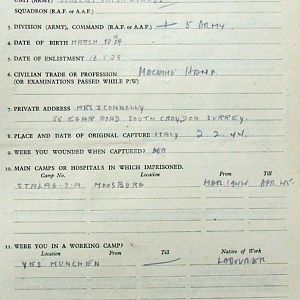 SQUADRON (R.A.F. or A.A.F.)
3. DIVISION (ARMY), COMMAND (R.A.F. or A.A.F.) + 5 ARMY.
4. DATE OF BIRTH MARCH 1819
5. DATE OF ENLISTMENT 16.5.39
6. CIVILIAN TRADE OR PROFESSION MACHINE HAND.
(OR EXAMINATIONS PASSED WHILE P/W)
7. PRIVATE ADDRESS MRS J CONNOLLY
55 EGAR ROAD SOUTH CROYDON SURREY.
8. PLACE AND DATE OF ORIGINAL CAPTURE ITALY 2.2.44.
9. WERE YOU WOUNDED WHEN CAPTURED? NO
10. MAIN CAMPS OR HOSPITALS IN WHICH IMPRISONED.
Camp No. Location From Till
STALAG-7-A MOOSBURG MAR 1944 APR 45
11. WERE YOU IN A WORKING CAMP?
Location From Till Nature of Work
YES MUNCHEN LABOURER